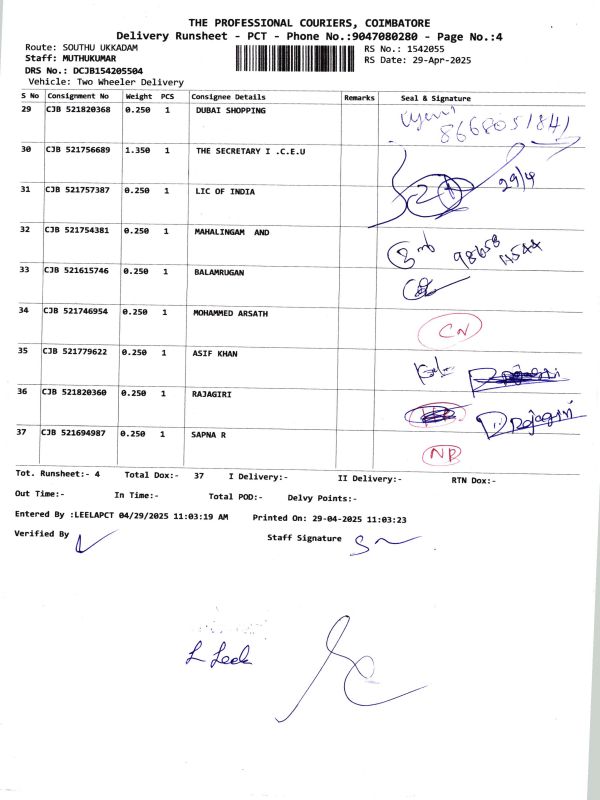 THE PROFESSIONAL COURIERS, COIMBATORE
Delivery Runsheet - PCT - Phone No.:9047080280 - Page No.:4
Route: SOUTHU UKKADAM RS No.: 1542055
Staff: MUTHUKUMAR RS Date: 29-Apr-2025
DRS No.: DCJB154205504
Vehicle: Two Wheeler Delivery
S No Consignment No Weight PCS Consignee Details Remarks Seal & Signature
29 CJB 521820368 0.250 1 DUBAI SHOPPING
8668051841
30 CJB 521756689 1.350 1 THE SECRETARY I .C.E.U
31 CJB 521757387 0.250 1 LIC OF INDIA 29/4
32 CJB 521754381 0.250 1 MAHALINGAM AND
33 CJB 521615746 0.250 1 BALAMRUGAN
34 CJB 521746954 0.250 1 MOHAMMED ARSATH CN
35 CJB 521779622 0.250 1 ASIF KHAN
36 CJB 521820360 0.250 1 RAJAGIRI D.Rajagiri
37 CJB 521694987 0.250 1 SAPNA R NP
Tot. Runsheet:- 4 Total Dox:- 37 I Delivery:- II Delivery:- RTN Dox:-
Out Time:- In Time:- Total POD:- Delvy Points:-
Entered By :LEELAPCT 04/29/2025 11:03:19 AM Printed On: 29-04-2025 11:03:23
Verified By Staff Signature